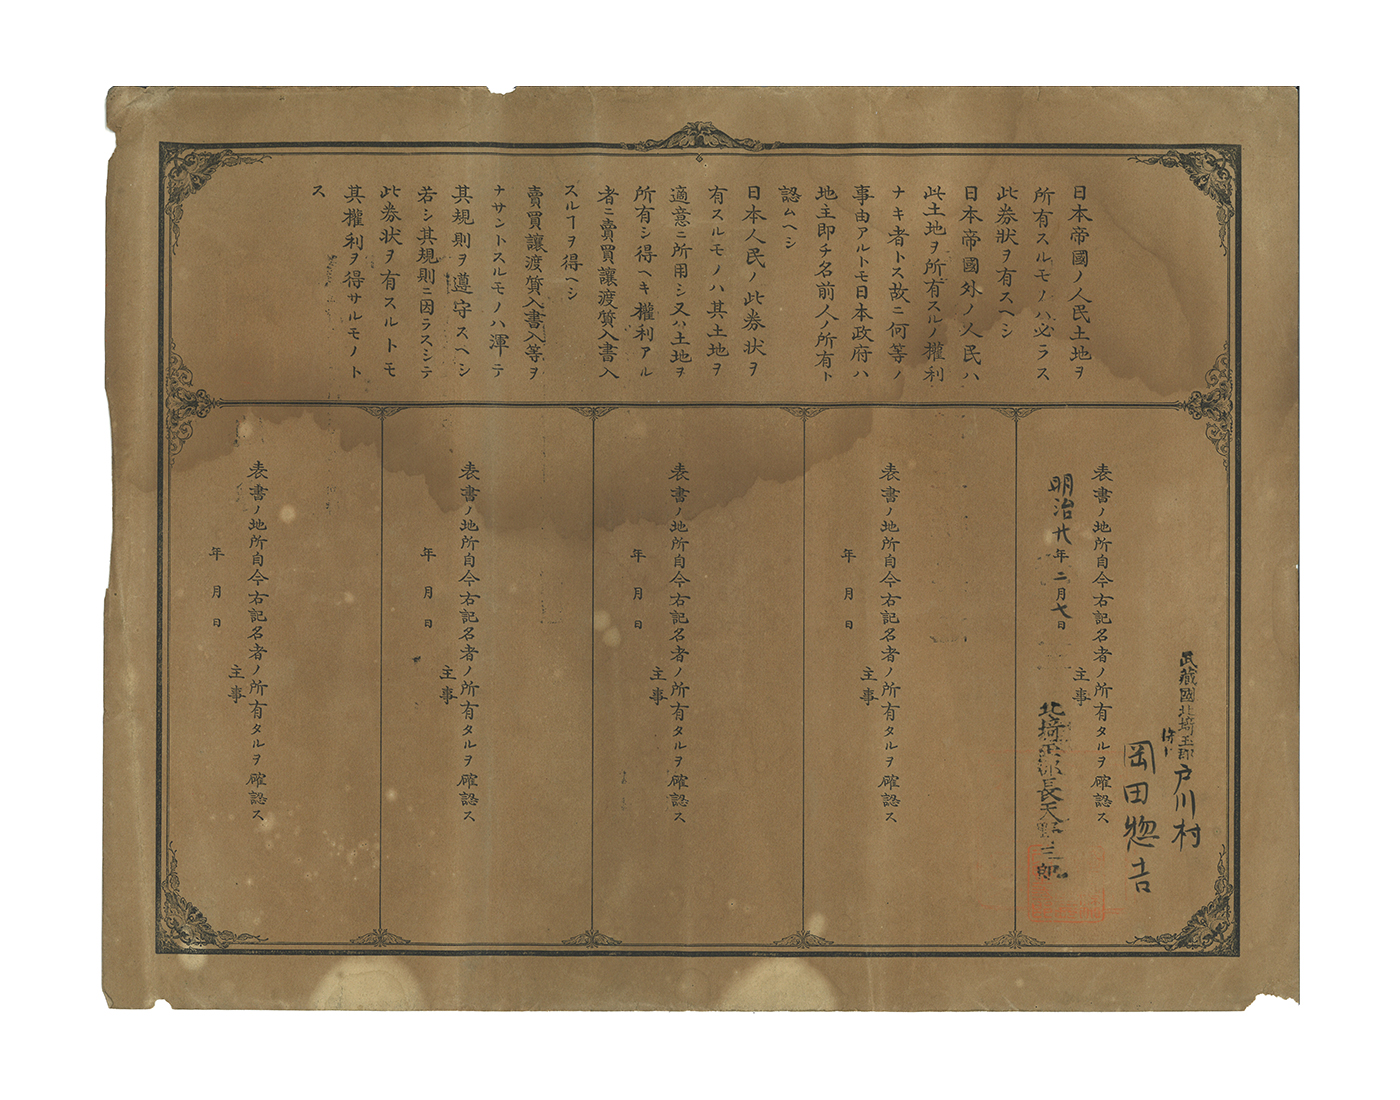 日本帝國ノ人民土地ヲ
所有スルモノハ必ラス
此券狀ヲ有スヘシ
日本帝國外ノ人民ハ
此土地ヲ所有スルノ權利
ナキ者トス故ニ何等ノ
事由アルトモ日本政府ハ
地主即チ名前人ノ所有ト
認ムヘシ
日本人民ノ此券狀ヲ
有スルモノハ其土地ヲ
適意ニ所用シ又ハ土地ヲ
所有シ得ヘキ權利アル
者ニ賣買讓渡質入書入
スルヿヲ得ヘシ
賣買讓渡質入書入等ヲ
ナサントスルモノハ渾テ
其規則ヲ遵守スヘシ
若シ其規則ニ因ラスシテ
此券狀ヲ有スルトモ
其權利ヲ得サルモノト
ス
武藏國北埼玉郡戸川村
岡田惣吉
表書ノ地所自今右記名者ノ所有タルヲ確認ス
主事
明治廿年二月七日
北埼玉郡長天野三郎
表書ノ地所自今右記名者ノ所有タルヲ確認ス
主事
年月日
表書ノ地所自今右記名者ノ所有タルヲ確認ス
主事
年月日
表書ノ地所自今右記名者ノ所有タルヲ確認ス
主事
年月日
表書ノ地所自今右記名者ノ所有タルヲ確認ス
主事
年月日